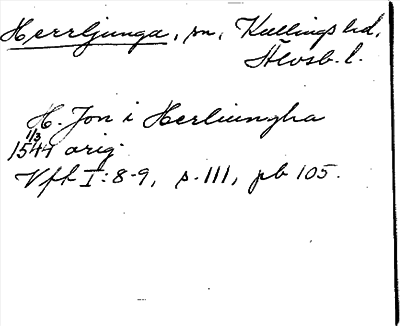 Herrljunga, sn, Kullings hd,
Älvsb. l.
H. Jon i Herliungha
1/3
1544 orig.
Vfh I: 8-9, s. 111, pb 105.